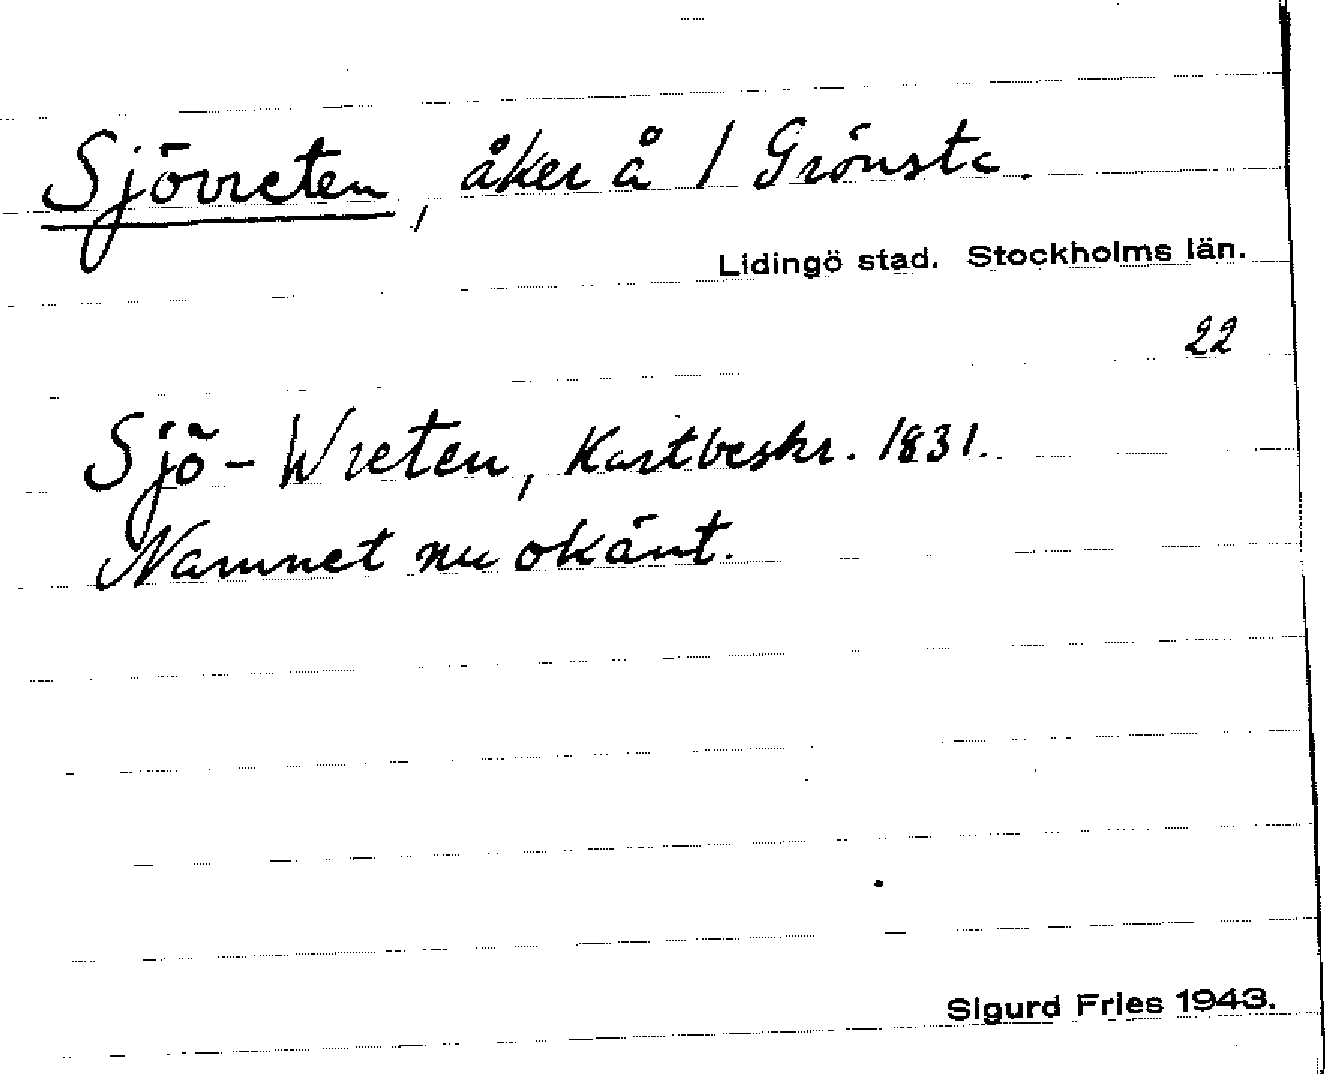 Sjövreten, åker å 1 Grönsta.
Lidingö stad. Stockholms län.
22
Sjö-Wreten, Kartbeskr. 1831.
Namnet nu okänt.
Sigurd Fries 1943.